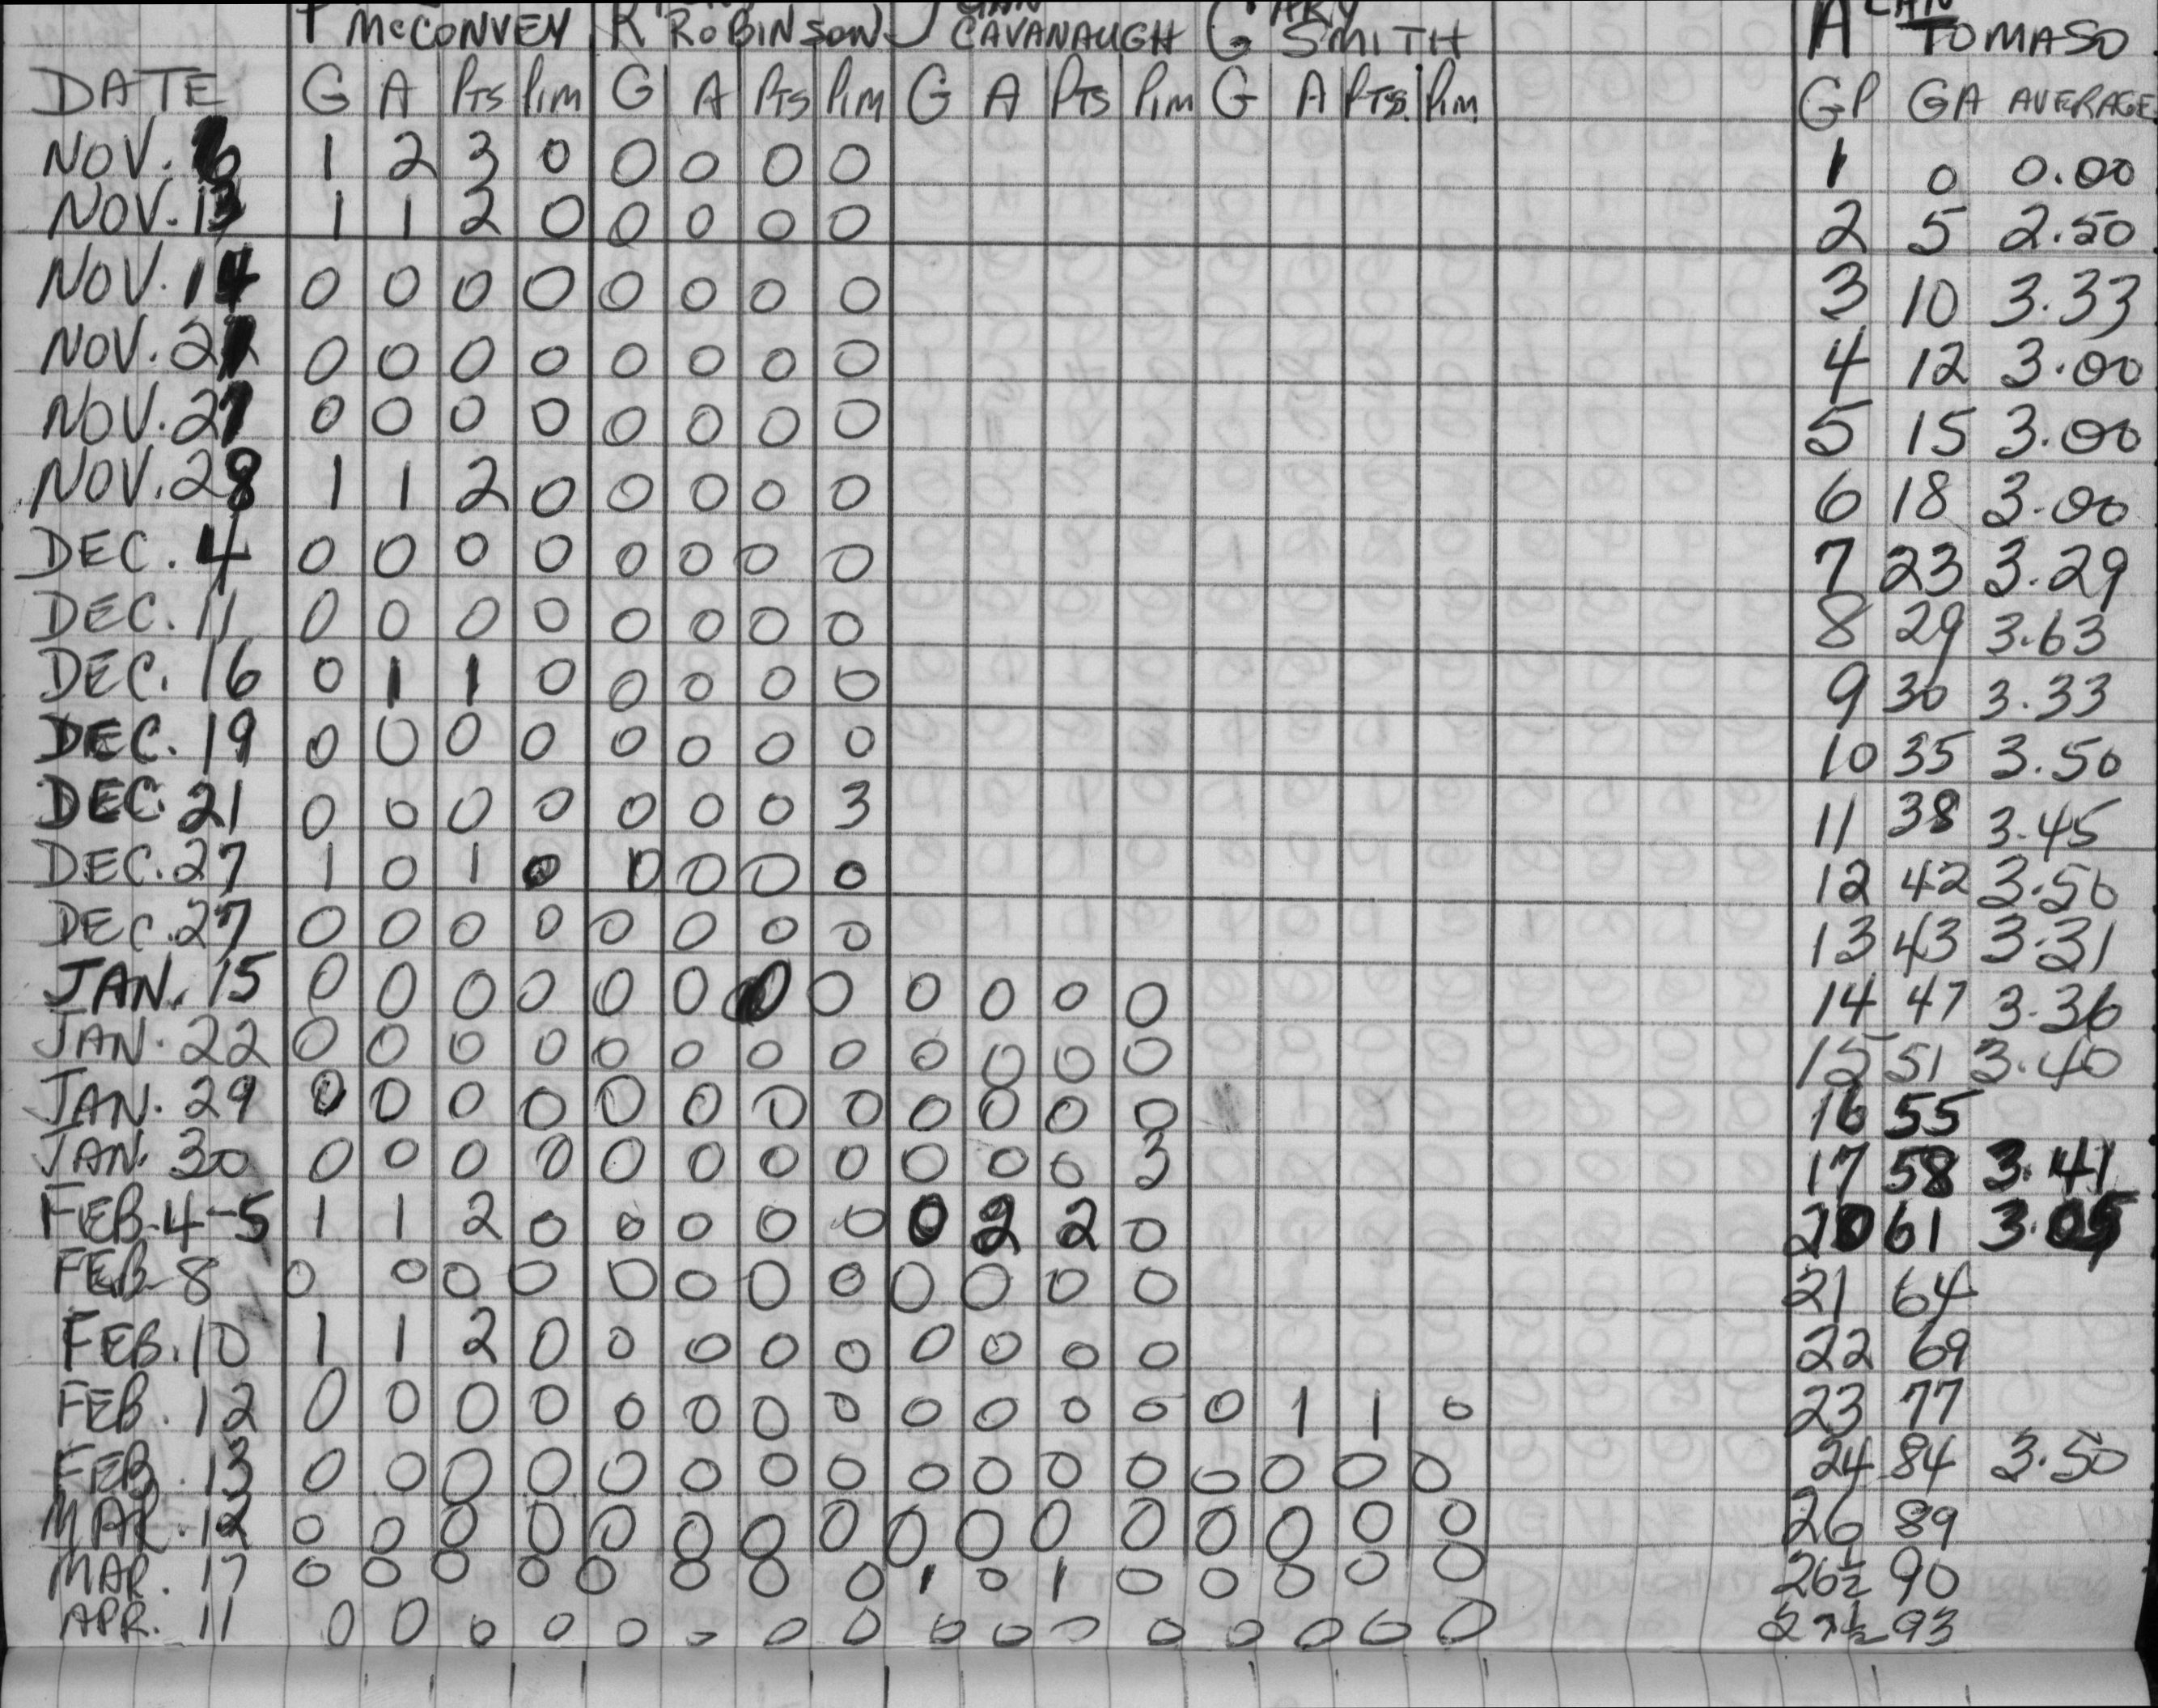 McCONVEY ROBINSON CAVANAUGH G SMITH A TOMASO
DATE G A PTS PIM G A PTS PIM G A PTS PIM G A PTS. PIM GP GA AVERAGE
NOV. 6 1 2 3 0 0 0 0 0 1 0 0.00
NOV. 13 1 1 2 0 0 0 0 0 2 5 2.50
NOV. 14 0 0 0 0 0 0 0 0 3 10 3.33
NOV. 21 0 0 0 0 0 0 0 0 4 12 3.00
NOV. 27 0 0 0 0 0 0 0 0 5 15 3.00
NOV. 28 1 1 2 0 0 0 0 0 6 18 3.00
DEC. 4 0 0 0 0 0 0 0 0 7 23 3.29
DEC. 11 0 0 0 0 0 0 0 0 8 29 3.63
DEC. 16 0 1 1 0 0 0 0 0 9 30 3.33
DEC. 19 0 0 0 0 0 0 0 0 10 35 3.50
DEC. 21 0 0 0 0 0 0 0 3 11 38 3.45
DEC. 27 1 0 1 0 0 0 0 0 12 42 3.50
DEC. 27 0 0 0 0 0 0 0 0 13 43 3.31
JAN. 15 0 0 0 0 0 0 0 0 0 0 0 0 14 47 3.36
JAN. 22 0 0 0 0 0 0 0 0 0 0 0 0 15 51 3.40
JAN. 29 0 0 0 0 0 0 0 0 0 0 0 0 16 55
JAN. 30 0 0 0 0 0 0 0 0 0 0 0 3 17 58 3.41
FEB-4-5 1 1 2 0 0 0 0 0 0 2 2 0 20 61 3.05
FEB-8 0 0 0 0 0 0 0 0 0 0 0 0 21 64
FEB. 10 1 1 2 0 0 0 0 0 0 0 0 0 22 69
FEB. 12 0 0 0 0 0 0 0 0 0 0 0 0 0 1 1 0 23 77
FEB. 13 0 0 0 0 0 0 0 0 0 0 0 0 0 0 0 0 24 84 3.50
MAR. 12 0 0 0 0 0 0 0 0 0 0 0 0 0 0 0 0 26 89
MAR. 17 0 0 0 0 0 0 0 0 1 0 1 0 0 0 0 0 26½ 90
APR. 11 0 0 0 0 0 0 0 0 0 0 0 0 0 0 0 0 27½ 93